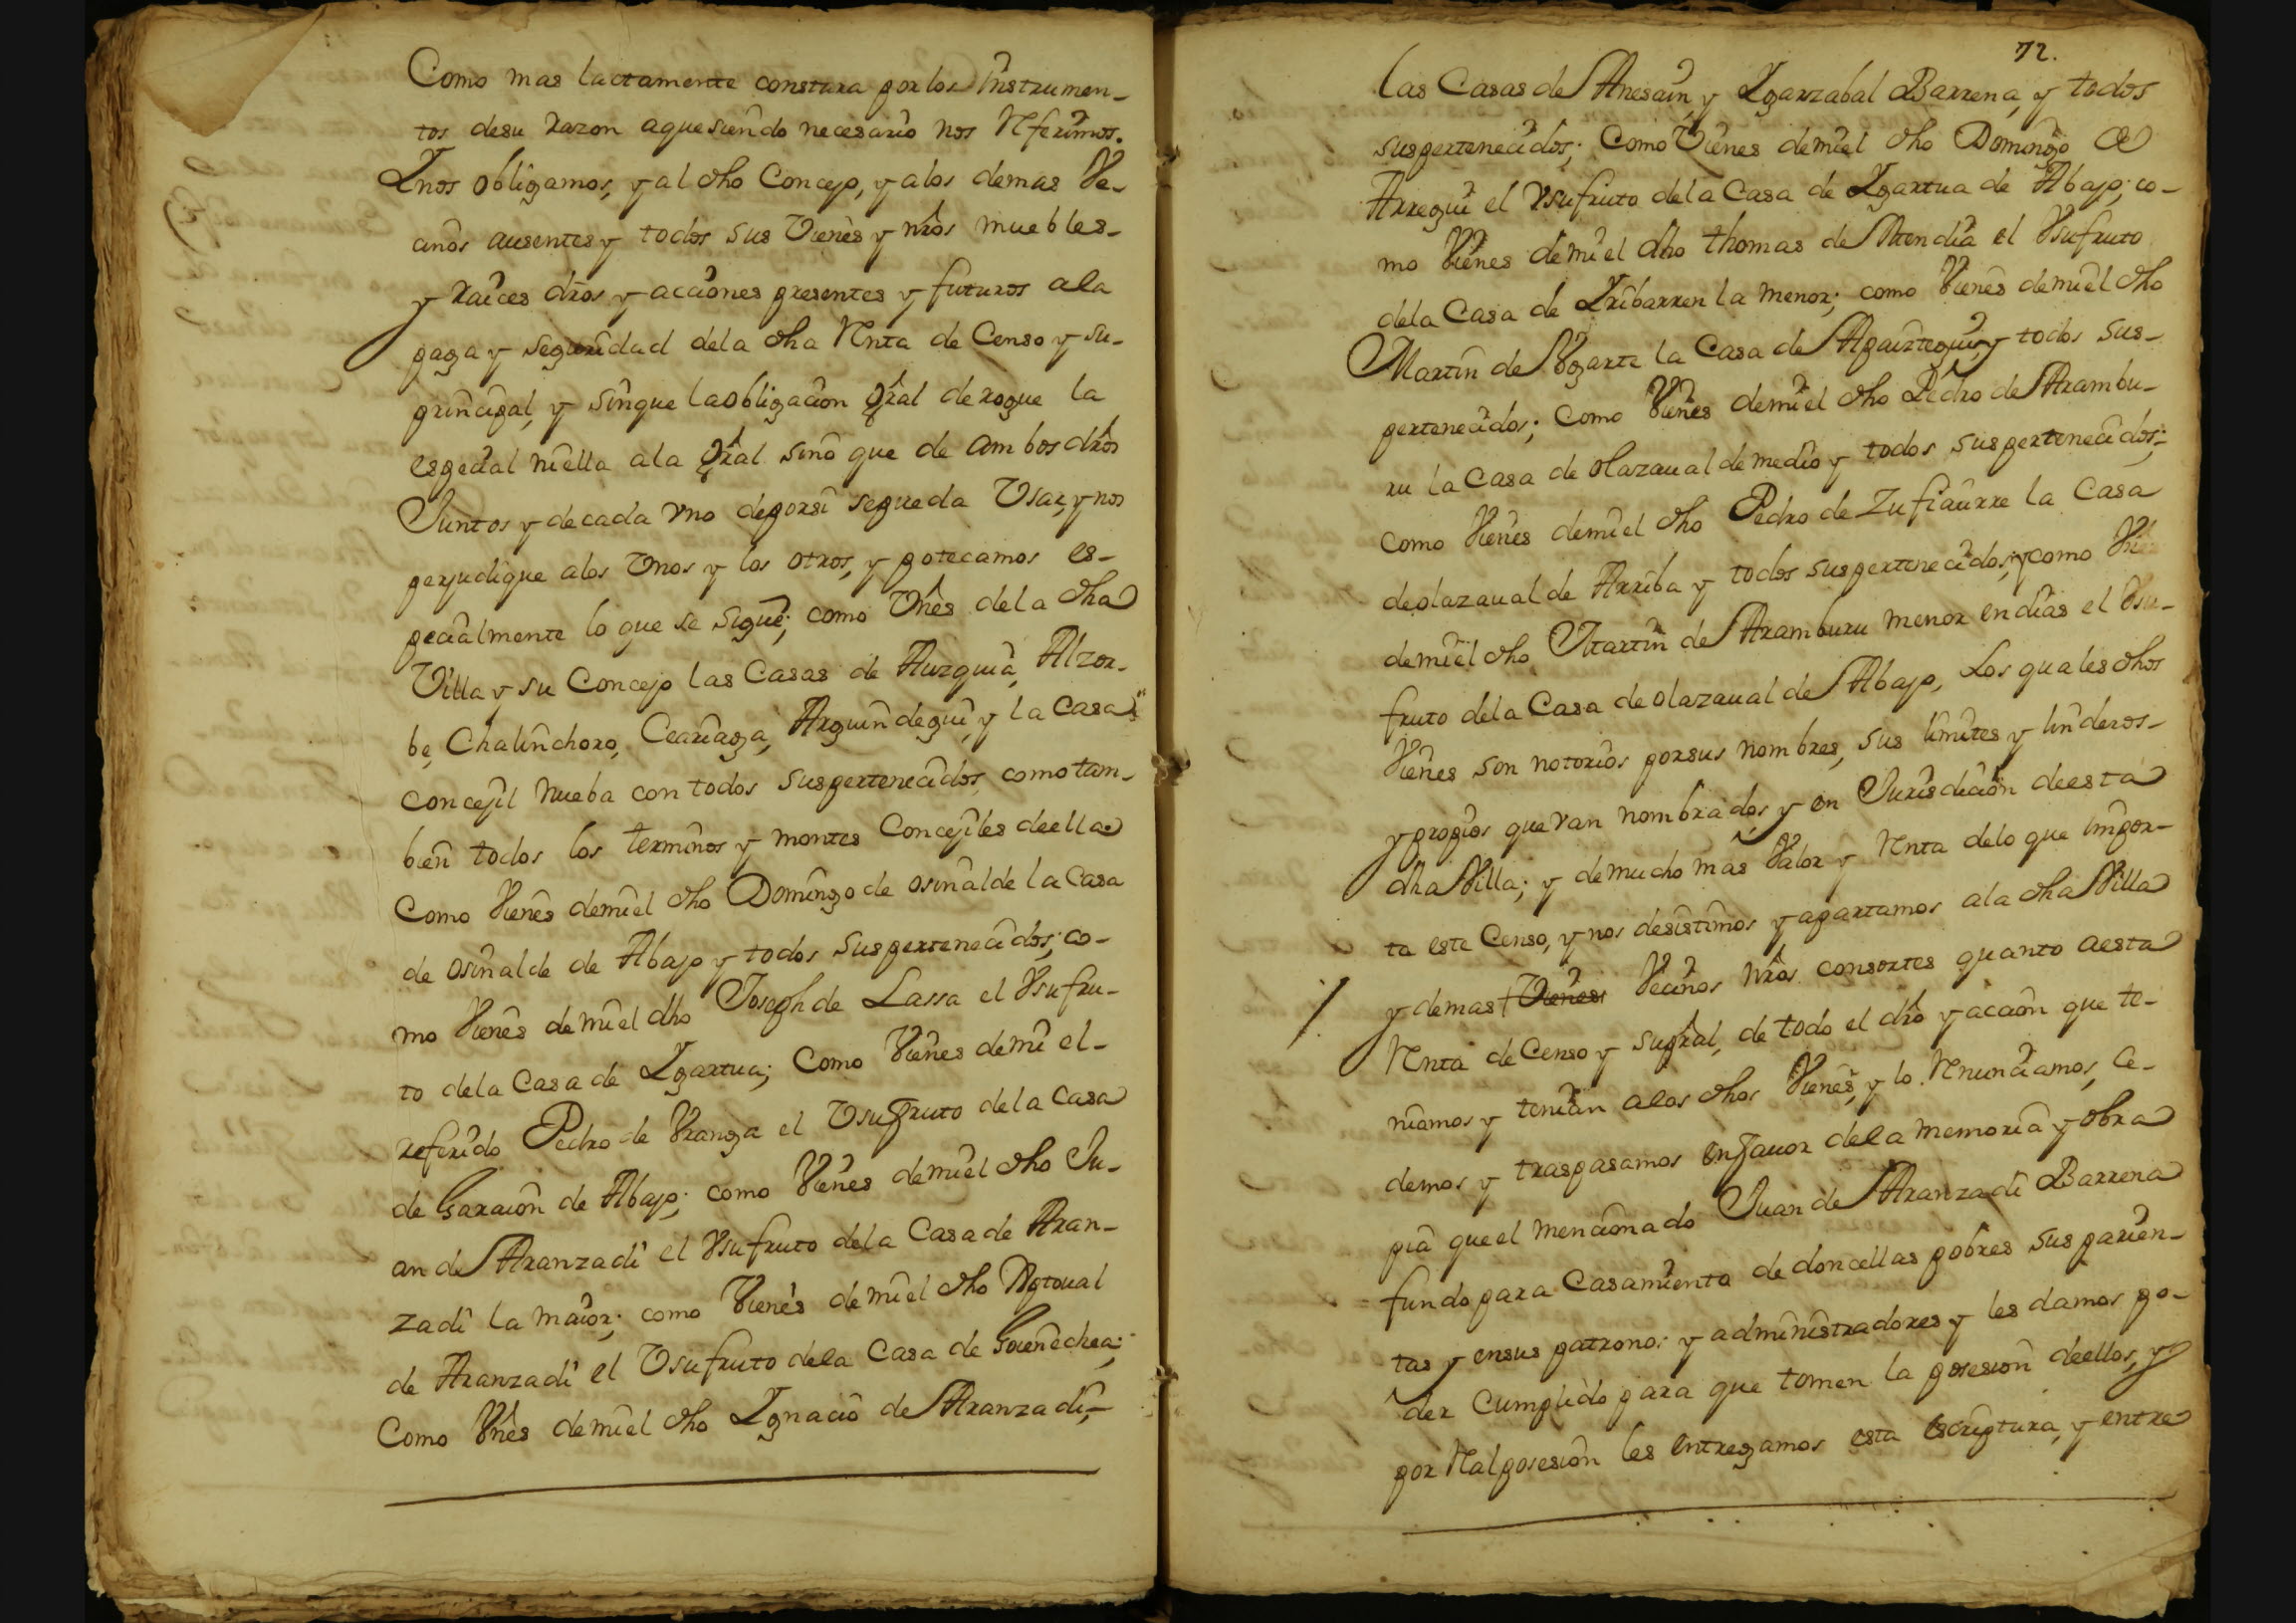 Como mas lactamente constara por los Instrumen-
tos desu razon aquesiendo necesario nos Referimos.
Ynos obligamos, y al dho Concejo, y alos demas Ve-
cinos ausentes y todos sus Vienes y nros muebles-
y raices dros y acciones presentes y futuros ala
paga y seguridad dela dha Renta de Censo y su-
principal, y sinque la obligacion Gral derogue la
especial niella ala Gral sino que de ambos dros
Juntos y decada Vno deporsi sepueda Vsar, y nos
perjudique alos Vnos y los otros, y potecamos es-
pecialmente lo que se sigue; como Vnes dela dha
Villa y su Concejo las Casas de Auzquia, Alzor-
be, Chalinchoro, Ceariaga, Arguindegui, y la Casa
concejil nueba con todos suspertenecidos, como tam-
bien todos los terminos y montes Concejiles deella
Como Vienes demiel dho Domingo de osinalde la Casa
de osinalde de Abajo y todos suspertenecidos; co-
mo Vienes de miel dho Joseph de Lassa el Vsufru-
to dela Casa de Ygartua; Como Vienes demi el-
referido Pedro de Vranga el Vsufruto dela Casa
de Garacion de Abajo; como Vienes demiel dho Ju-
an de Aranzadi el Vsufruto dela Casa de Aran-
zadi la maior; como Vienes de miel dho
de Aranzadi el Vsufruto dela Casa de Goienechea;
Como Vnes demiel dho Ygnacio de Aranzadi,-
72.
las Casas de Anesain, y Ygarzabal Barrena, y todos
suspertenecidos; Como Vienes demiel dho Domingo de
Arregui el Vsufruto dela Casa de Ygartua de Abajo; co-
mo Vienes demi el dho thomas de Atendia el Vsufruto
dela Casa de Yribarren la menor; como Vienes demiel dho
Martin de Vgarte la Casa de Apaiztegui, y todos sus-
pertenecidos; Como Vienes demiel dho Pedro de Arambu-
ru la Casa de olazaual de medio y todos suspertenecidos;
como Vienes demiel dho Pedro de Zufiaurre la Casa
deolazaual de Arriba y todos suspertenecidos, y como
demiel dho Martin de Aramburu menor endias el Vsu-
fruto dela Casa de olazaual de Abajo, Los quales dhos
Vienes son notorios porsus nombres, sus limites y linderos-
y propios que van nombrados y en Jurisdicion deesta
dha Villa; y de mucho mas Valor y Renta delo que impor-
ta este Censo, y nos desistimos y apartamos ala dha Villa
y demas Vienes Vecinos nros consortes quanto aesta
Renta de Censo y supral, de todo el dro y accion que te-
niamos y tenian alos dhos Vienes, y lo Renunciamos, Ce-
demos y traspasamos enfauor dela memoria y obra
pia que el mencionado Juan de Aranzadi Barrena
fundo para Casamiento de doncellas pobres sus parien-
tas y ensus patronos y administradores y les damos po-
der Cumplido para que tomen la posesion deellos, y
por Real posesion les entregamos esta escriptura, y entre